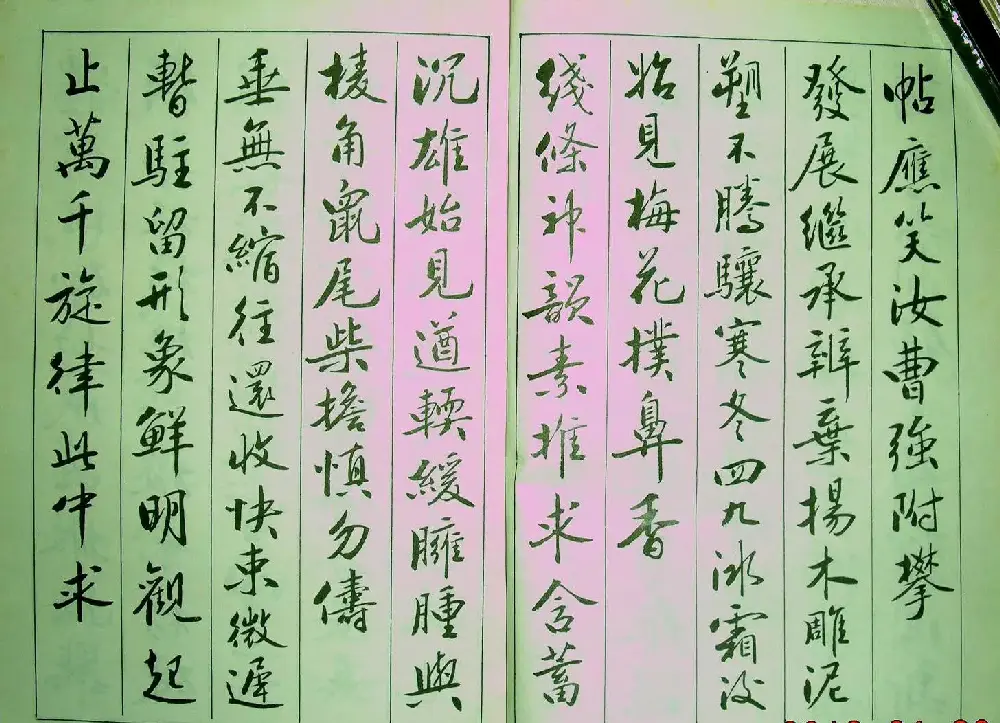 帖應笑汝曹強附攀
發展繼承辨棄揚木雕泥
塑不騰驤寒冬四九冰霜
始見梅花撲鼻香
綫條神韻素推求含蓄
沉雄始見遒輭緩臃腫與
棱角鼠尾柴擔慎勿儔
垂無不縮往還收快束微遲
暫駐留形象鮮明觀起
止萬千旋律此中求